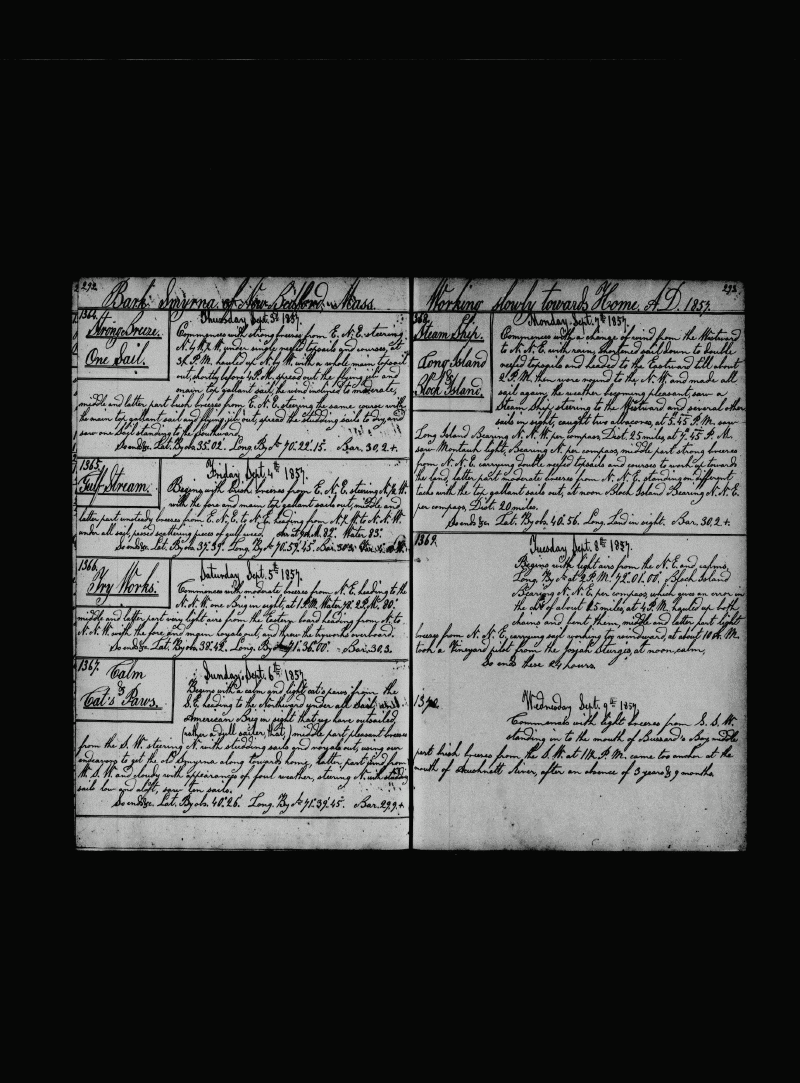 292
Bark Smyrna of New Bedford Mass.
1364.
Strong Breeze.
One Sail.
Thursday Sept. 3d 1857.
Commences with strong breeze from E. N. E. steering
N. by W. under single reefed topsails and courses, at
3 P. M. hauled up with a whole main topsail
out, shortly before 4 P. M. spread out the flying jib and
main top gallant sail, the wind inclined to moderate,
middle and latter part brisk breezes from E. N. E. steering the same course with
the main top gallant sail and flying jib out, spread the studding sails to dry and
saw one sail standing to the Southward.
So ends &c. Lat. By obs. 35.02. Long. By 70.22.15. Bar. 30,2+.
1365.
Gulf Stream.
Friday Sept. 4th 1857.
Begins with brisk breezes from E. N. E. steering
with the fore and main top gallant sails out, middle and
latter part unsteady breezes from E. N. E. to N. E. heading from to N. N. W.
under all sail, passed scattering pieces of gulf weed. Air at 82° Water 83°
So ends &c. Lat. By obs. 37.39. Long. By 70.57.45. Bar. 30.3.
1366.
Try Works.
Saturday Sept. 5th 1857.
Commences with moderate breezes from N. E. heading to the
N. N. W. one Brig in sight, at 1 P. M. Water 78° 2 P. M. 80°
middle and latter part very light airs from the Eastern board heading from N. to
N. N. W. with the fore and main royals out, and threw the tryworks overboard.
So ends &c. Lat. By obs. 38.42. Long. By 71.36.00. Bar. 30,3.
1367.
Calm
&
Cat's Paws.
Sunday Sept. 6th 1857.
Begins with a calm and light cat's paws from the
S. E. heading to the Northward under all Sail,
American Brig in sight that we have outsailed
(rather a dull sailer that,) middle part pleasant breezes
from the S. W. steering N. with studding sails and royals out, using our
endeavors to get the Old Smyrna along towards home, latter part wind from
W. S. W. and cloudy with appearances of foul weather, steering N. with studding
sails low and aloft, saw ten sails.
So ends &c. Lat. By obs. 40.26. Long. By 71.39.45. Bar. 29,9+.
293
Working slowly towards Home. A. D. 1857.
1368.
Steam Ship.
Long Island
&
Block Island.
Monday Sept. 7th 1857.
Commences with a change of wind from the Westward
to N. N. E. with rain, shortened sail down to double
reefed topsails and headed to the Eastward till about
2 P. M. then wore round to the N. W. and made all
sail again, the weather becoming pleasant, saw a
Steam Ship steering to the Westward and several other
sails in sight, caught two albacores, at 5.45 P. M. saw
Long Island Bearing N. N. W. per compass, Dist. 25 miles, at 7.45 P. M.
saw Montauk light, Bearing N. per compass, middle part strong breezes
from N. N. E. carrying double reefed topsails and courses to work up towards
the land, latter part moderate breezes from N. N. E. standing on different
tacks with the top gallant sails out, at noon Block Island Bearing N. N. E.
per compass, Dist. 20 miles.
So ends &c. Lat. By obs. 40.56. Long. Land in sight. Bar. 30,2+.
1369.
Tuesday Sept. 8th 1857.
Begins with light airs from the N. E. and calms,
Long. By at 2 P. M. 72.01.00. Block Island
Bearing N. N. E. per compass, which gives an error in
the of about 25 miles, at 4 P. M. hauled up both
chains and bent them, middle and latter part light
breezes from N. N. E. carrying sail working to windward, at about 10 A. M.
took a Vineyard pilot from the Josiah Sturgis, at noon, calm,
So ends these 24 hours.
1370.
Wednesday Sept. 9th 1857.
Commences with light breezes from S. S. W.
standing in to the mouth of Buzzard's Bay, middle
part brisk breezes from the S. W. at 11 P. M. came too anchor at the
mouth of Acushnett River, after an absence of 3 years & 9 months.